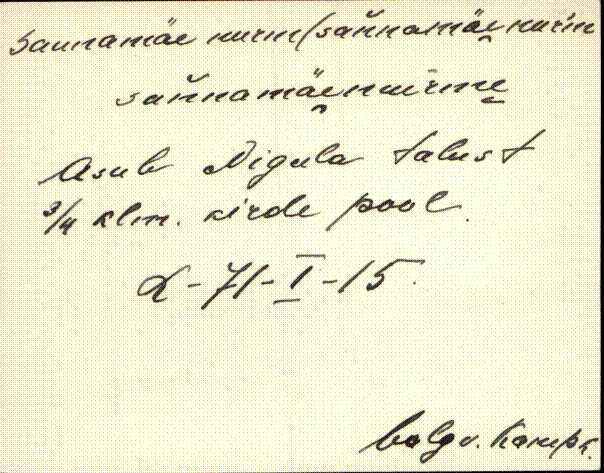 Saunamäe nurm (sańnamäe nurm
sańnamäe nuirme
Asub Nigula talust
3/4 klm. kirde pool.
L-71-I-15.
Kamps.